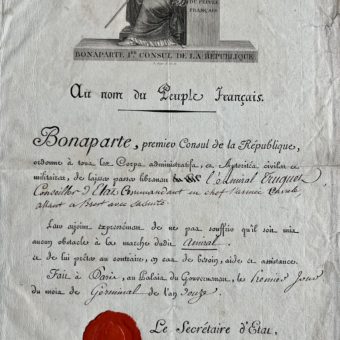 DU PEUPLE
FRANÇAIS.
BONAPARTE 1er CONSUL DE LA RÉPUBLIQUE
Au nom du Peuple Français.
Bonaparte, premier Consul de la République,
ordonne à tous les Corps administratifs, et Autorités civiles et
militaires, de laisser passer librement l'Amiral Truguet
Conseiller d'Etat Commandant en chef l'armée Navale
allant à Brest avec sa suite
Leur enjoint expressément de ne pas souffrir qu'il soit mis
aucun obstacle à la marche dudit amiral
et de lui prêter au contraire, en cas de besoin, aide et assistance.
Fait à Paris, au Palais du Gouvernement, le premier jour
du mois de Germinal de l'an douze
Le Secrétaire d'Etat,